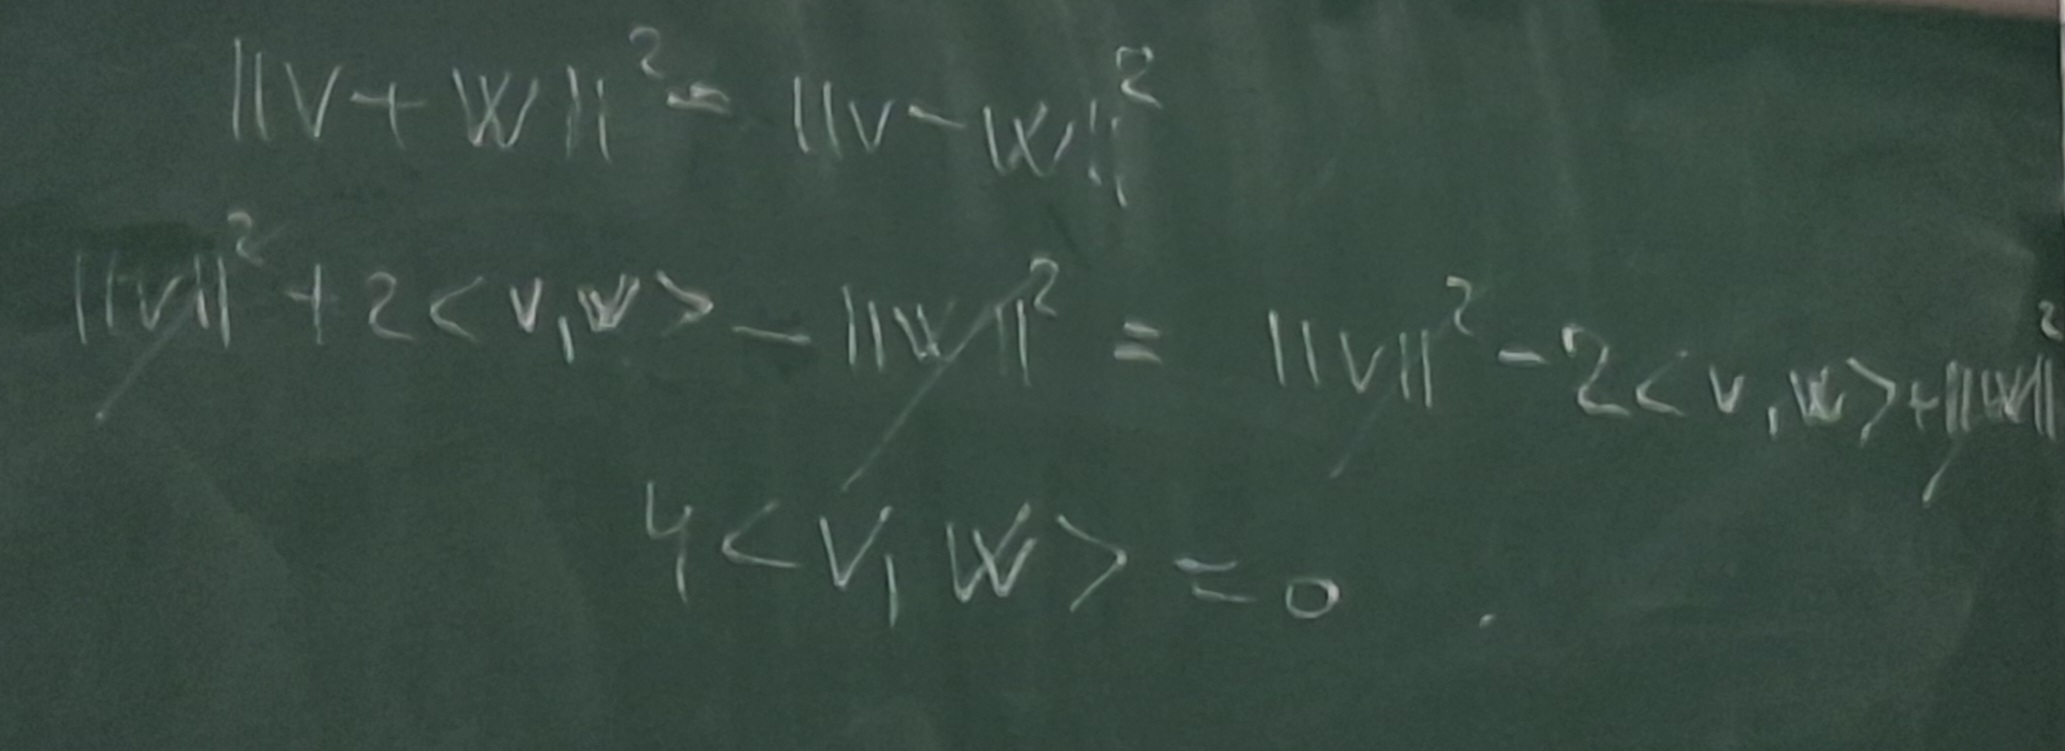 ||v+w||² = ||v-w||²
||v||² + 2<v,w> - ||w||² = ||v||² - 2<v,w> + ||w||²
4<v,w> = 0 .